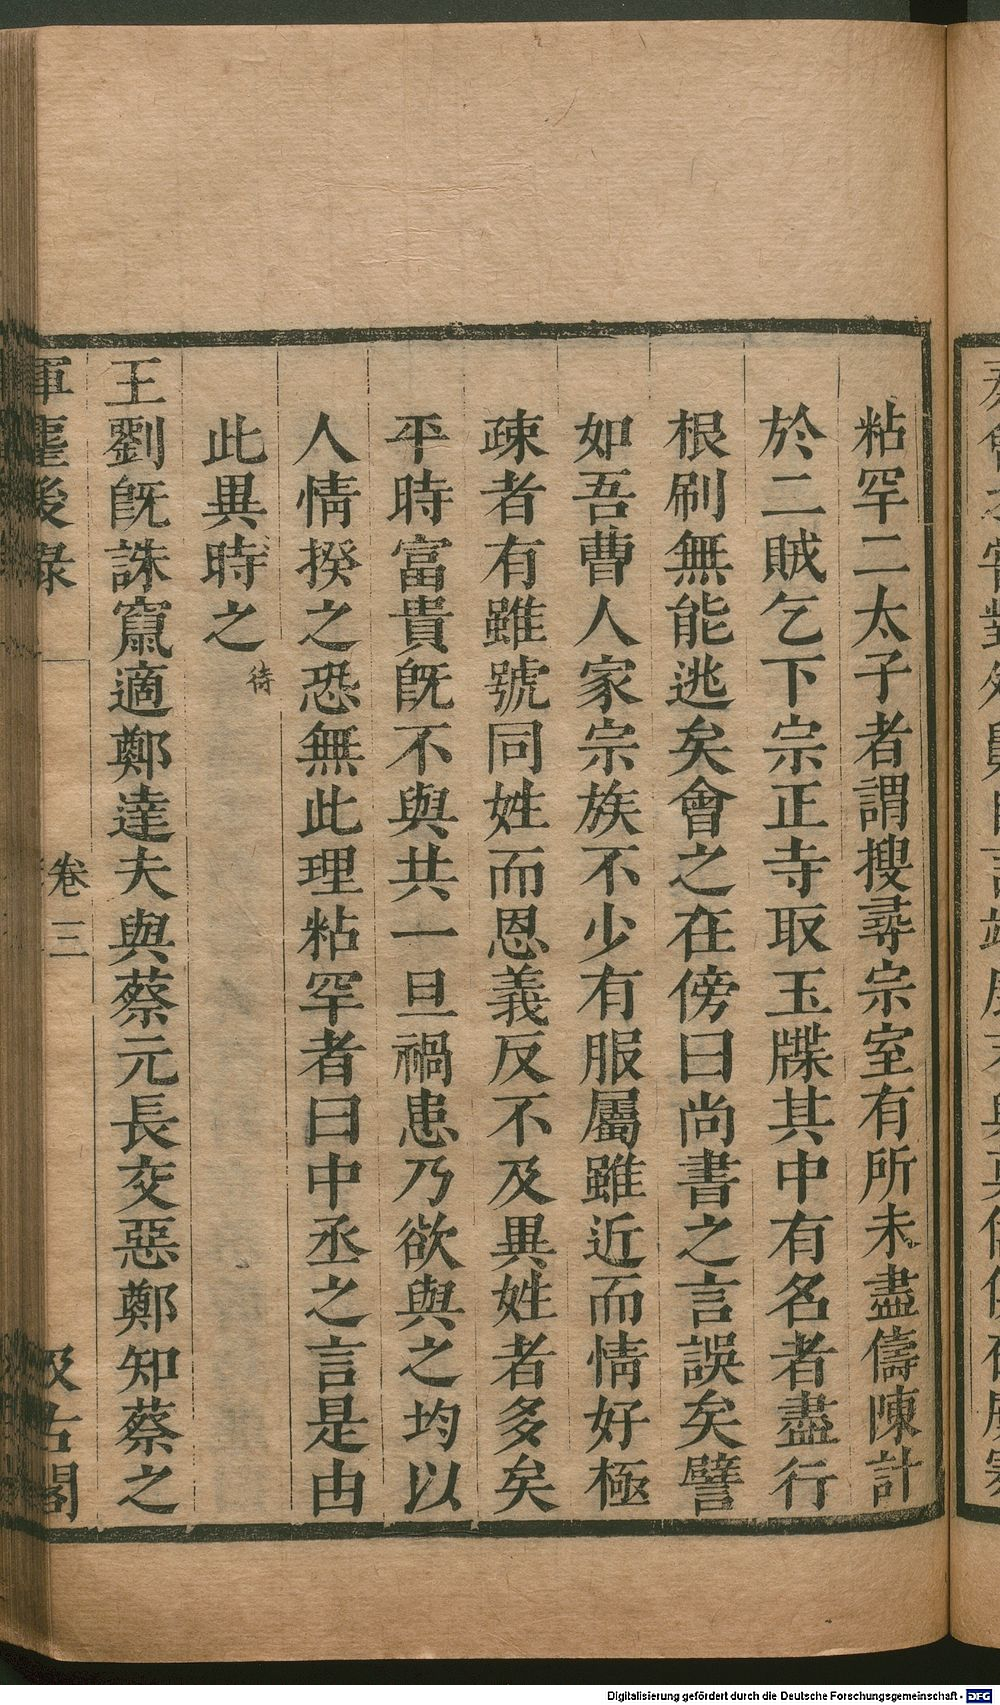 粘罕二太子者謂搜尋宗室有所未盡儔陳計
於二賊乞下宗正寺取玉牒其中有名者盡行
根刷無能逃矣會之在傍曰尚書之言誤矣譬
如吾曹人家宗族不少有服屬雖近而情好極
疎者有雖號同姓而恩義反不及異姓者多矣
平時富貴旣不與共一旦禍患乃欲與之均以
人情揆之恐無此理粘罕者曰中丞之言是由
此異時之
待
王劉旣誅竄適鄭達夫與蔡元長交惡鄭知蔡之
軍麈後錄
卷三
汲古閣
Digitalisierung gefördert durch die Deutsche Forschungsgemeinschaft - DFG